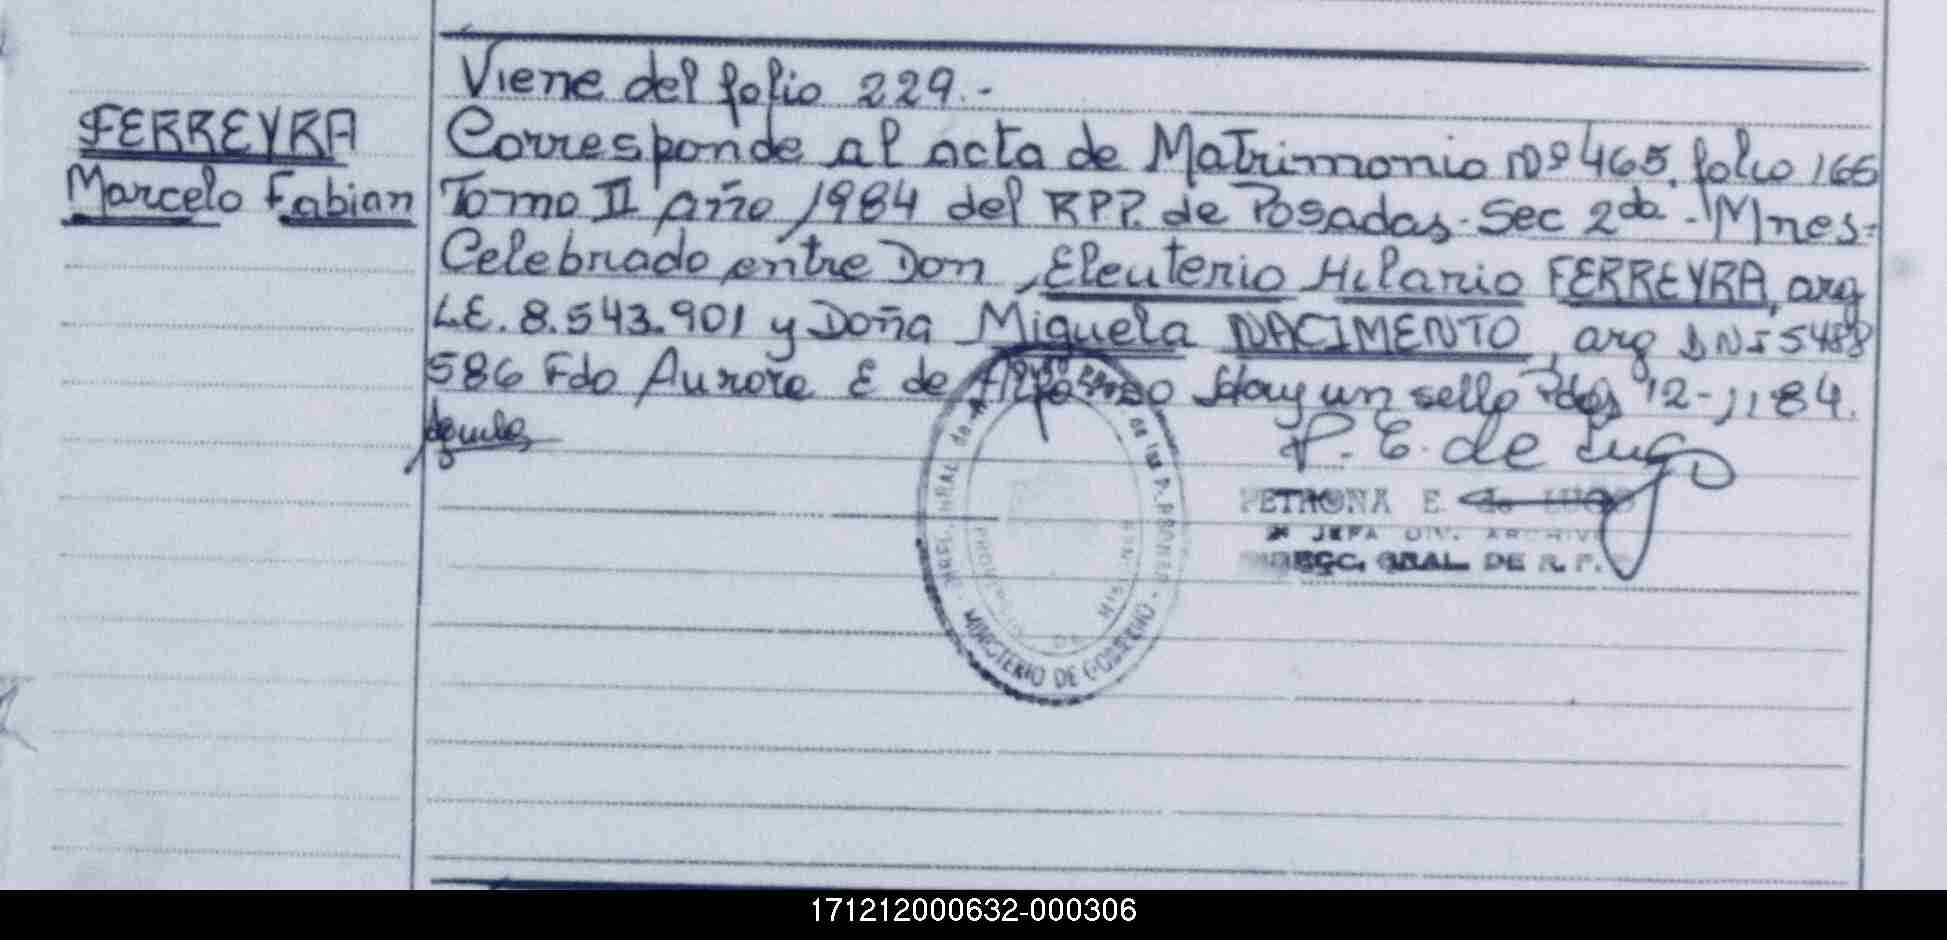 Viene del folio 229.-
FERREYRA
Marcelo Fabian
Corresponde al acta de Matrimonio Nº 465, folio 165
Tomo II año 1984 del RPP. de Posadas - Sec 2da - Mnes-
Celebrado entre Don Eleuterio Hilario FERREYRA, arg
LE. 8.543.901 y Doña Miguela NACIMENTO, arg DNI 5488
586 Fdo Aurora E de Hay un sello Pdas 12-11 84.
P. E. de Lugo
PETRONA E. de LUGO
JEFA DIV. ARCHIVO
DIRECC. GRAL. DE R. P.
MINISTERIO DE GOBIERNO
PROVINCIA DE MISIONES
171212000632-000306